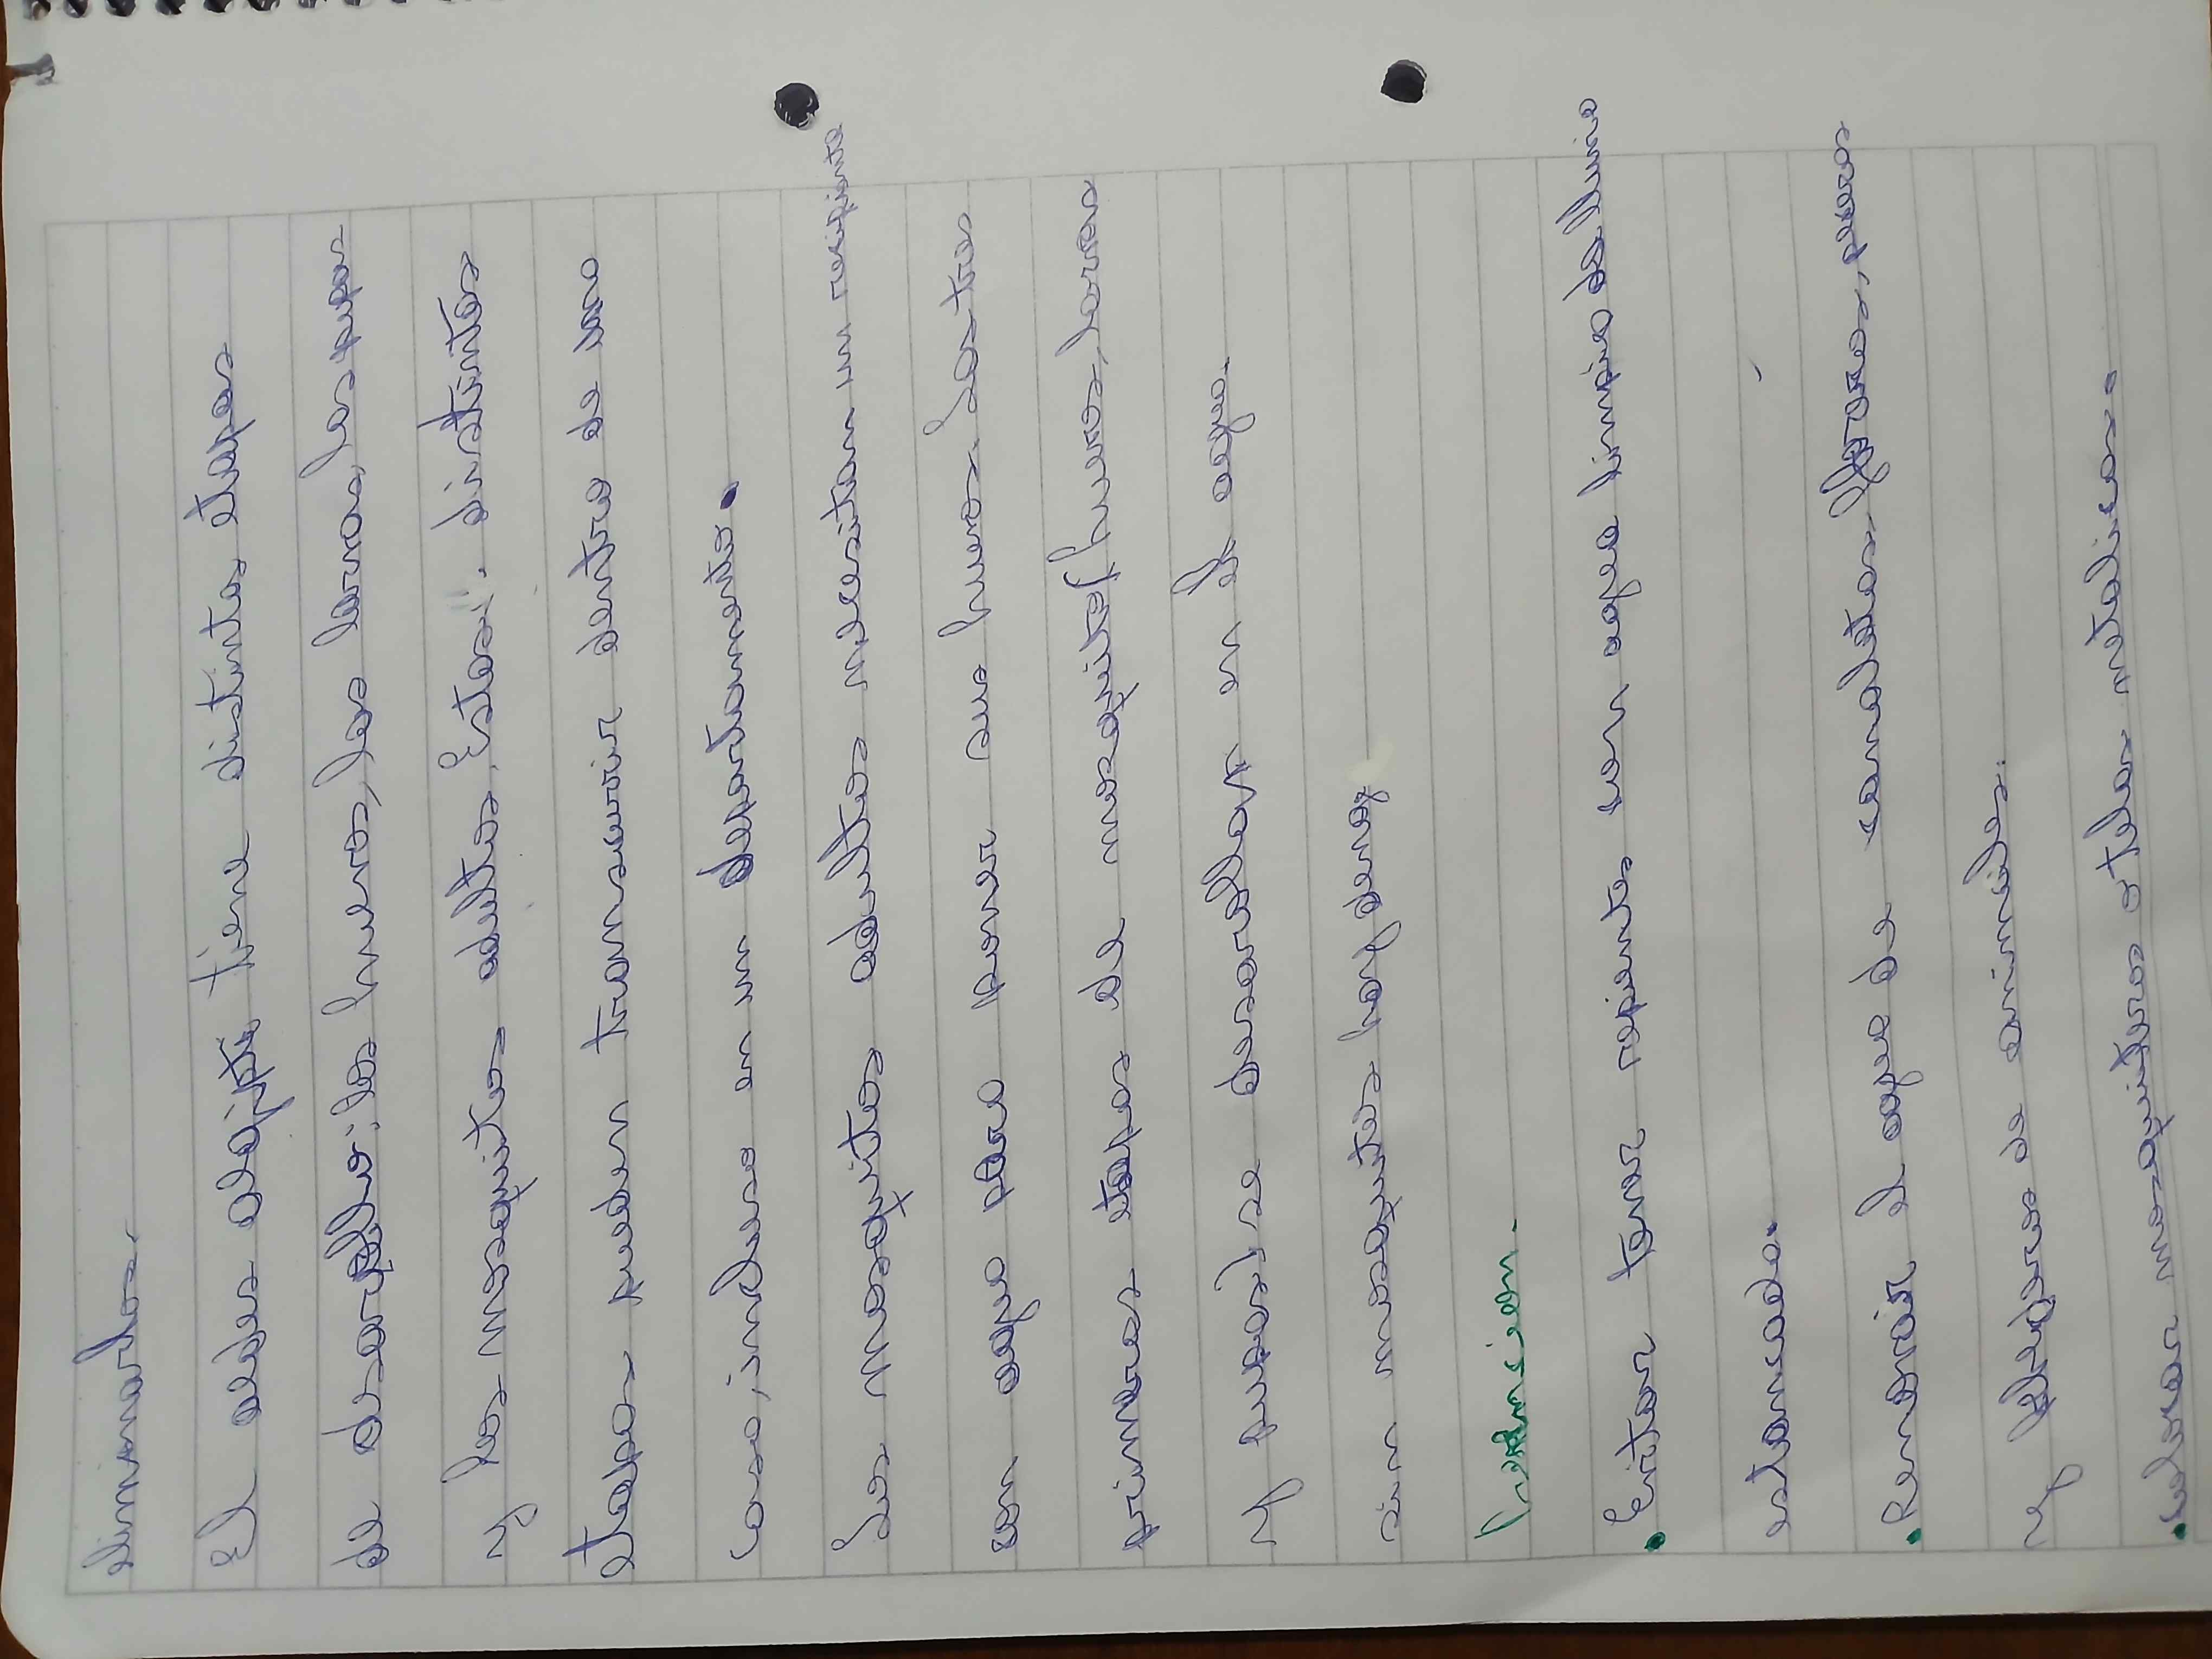 eliminarlos.
El aedes aegipti tiene distintas etapas
de desarrollo: los huevos, las larvas, las pupas
y los mosquitos adultos. Estas distintas
etapas pueden transcurrir dentro de una
casa, incluso en un departamento.
Los mosquitos adultos necesitan un recipiente
con agua para poner sus huevos. Las tres
primeras etapas de mosquito (huevos, larvas
y pupas) se desarrollan en el agua.
sin mosquitos hay dengue
Evitar tener recipientes con agua limpia de lluvia
estancada.
Removir el agua de canaletas, floreros, peceros
y bebederos de animales.
colocar mosquiteros o telas metalicas.